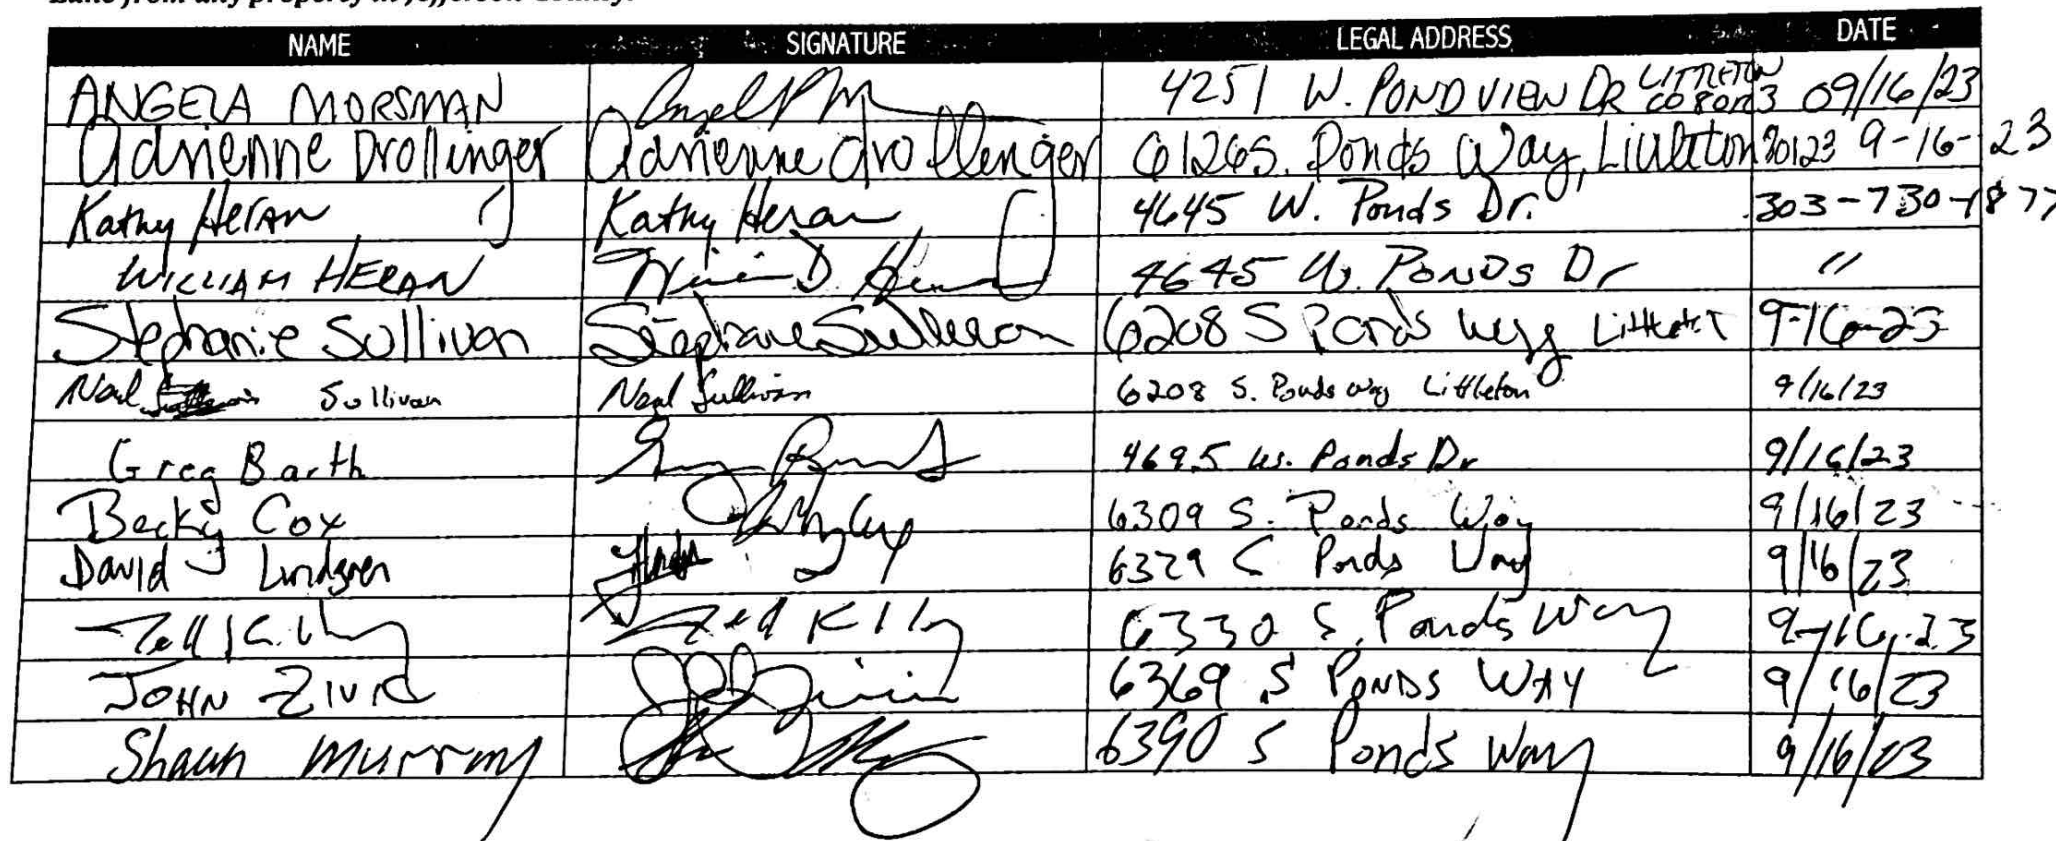 Lane from any property in Jefferson County.
NAME SIGNATURE LEGAL ADDRESS DATE
ANGELA MORSMAN 4251 W. POND VIEW DR LITTLETON CO 80123 09/16/23
Adrienne Drollinger Adrienne Drollinger 6126 S. Ponds Way, Littleton 80123 9-16-23
Kathy Heran Kathy Heran 4645 W. Ponds Dr. 303-730-1877
WILLIAM HERAN William D. Heran 4645 W. PONDS Dr "
Stephanie Sullivan Stephanie Sullivan 6208 S Ponds Way 9-16-23
Neal Sullivan Neal Sullivan 6208 S. Ponds Way Littleton 9/16/23
Greg Barth 4695 W. Ponds Dr 9/16/23
Becky Cox Becky Cox 6309 S. Ponds Way 9/16/23
David Lundgren 6329 S Ponds Way 9/16/23
6330 S. Ponds Way 9-16-23
JOHN 6369 S PONDS WAY 9/16/23
Shaun Murray 6390 S Ponds Way 9/16/23